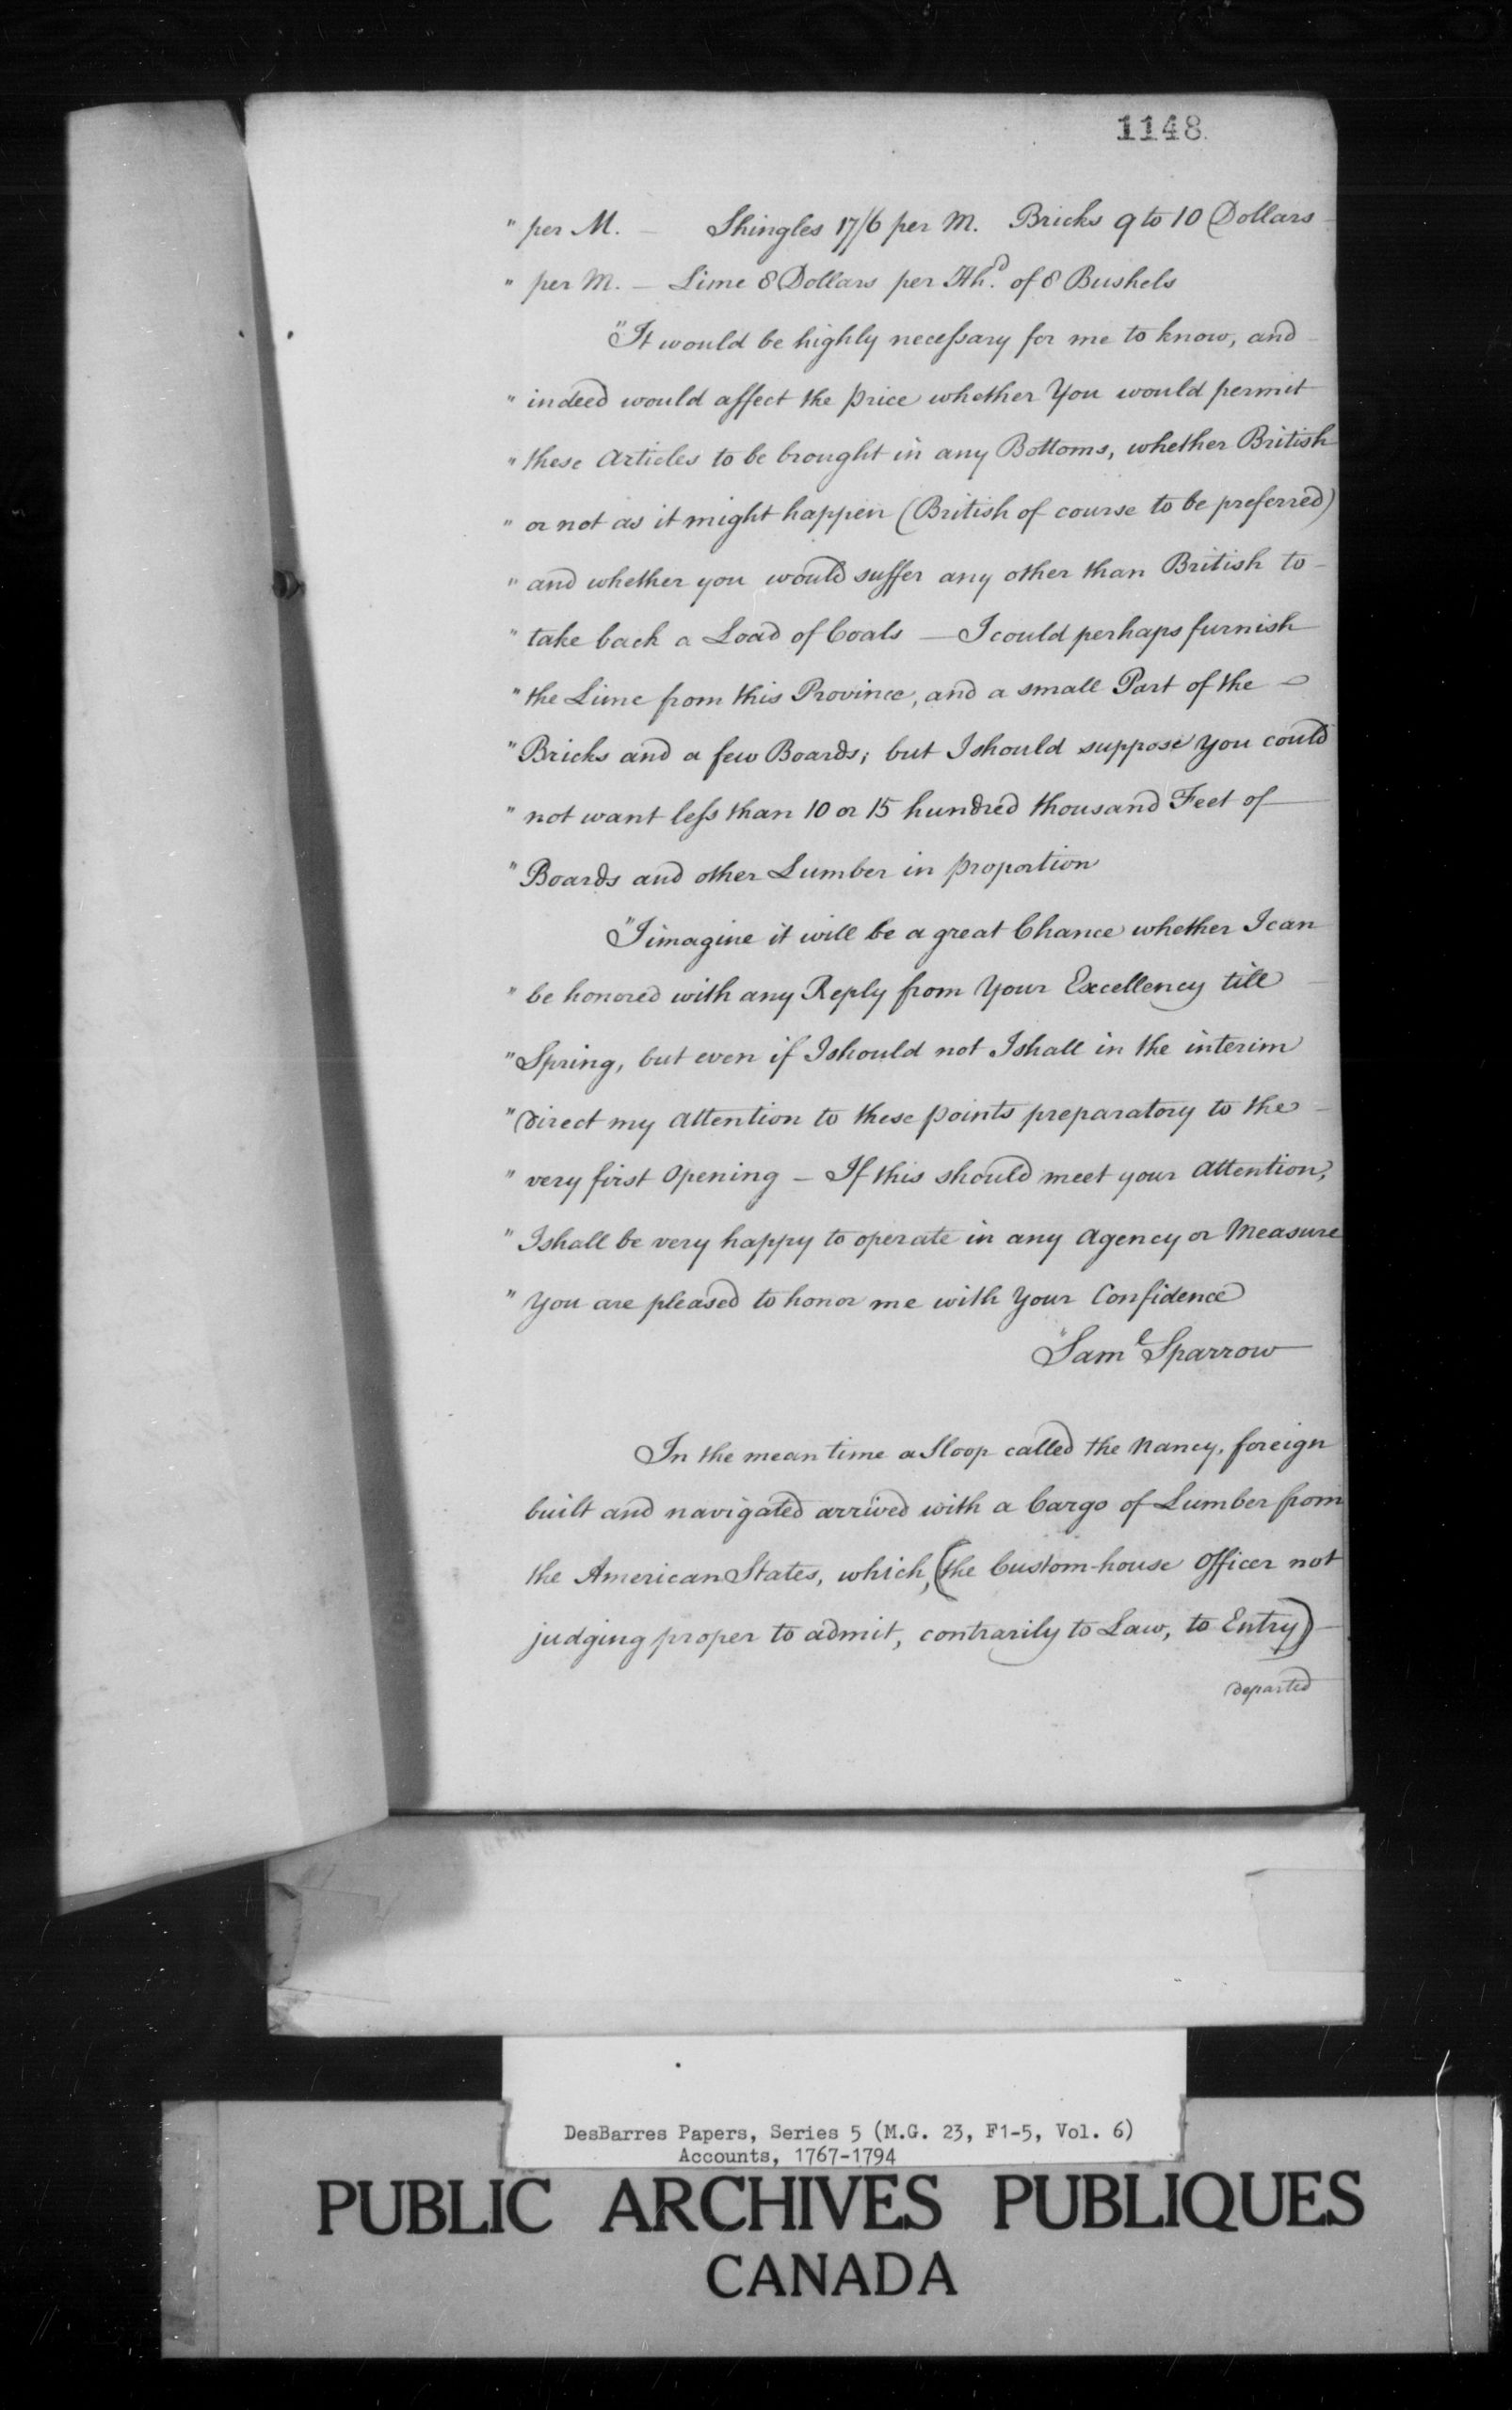 1148
" per M. — Shingles 17/6 per M. Bricks 9 to 10 Dollars
" per M. — Lime 8 Dollars per Hhd. of 8 Bushels
"It would be highly necessary for me to know, and
" indeed would affect the price whether You would permit
" these Articles to be brought in any Bottoms, whether British
" or not as it might happen (British of course to be preferred)
" and whether you would suffer any other than British to
" take back a Load of Coals — I could perhaps furnish
" the Lime from this Province, and a small Part of the
" Bricks and a few Boards; but I should suppose You could
" not want less than 10 or 15 hundred thousand Feet of
" Boards and other Lumber in proportion
"I imagine it will be a great Chance whether I can
" be honored with any Reply from Your Excellency till
" Spring, but even if I should not I shall in the interim
" Direct my Attention to these points preparatory to the
" very first Opening — If this should meet your Attention,
" I shall be very happy to operate in any Agency or Measure
" You are pleased to honor me with Your Confidence
"Saml Sparrow
In the mean time a Sloop called the Nancy, foreign
built and navigated arrived with a Cargo of Lumber from
the American States, which, (the Custom-house Officer not
judging proper to admit, contrarily to Law, to Entry)
departed
DesBarres Papers, Series 5 (M.G. 23, F1-5, Vol. 6)
Accounts, 1767-1794
PUBLIC ARCHIVES PUBLIQUES
CANADA